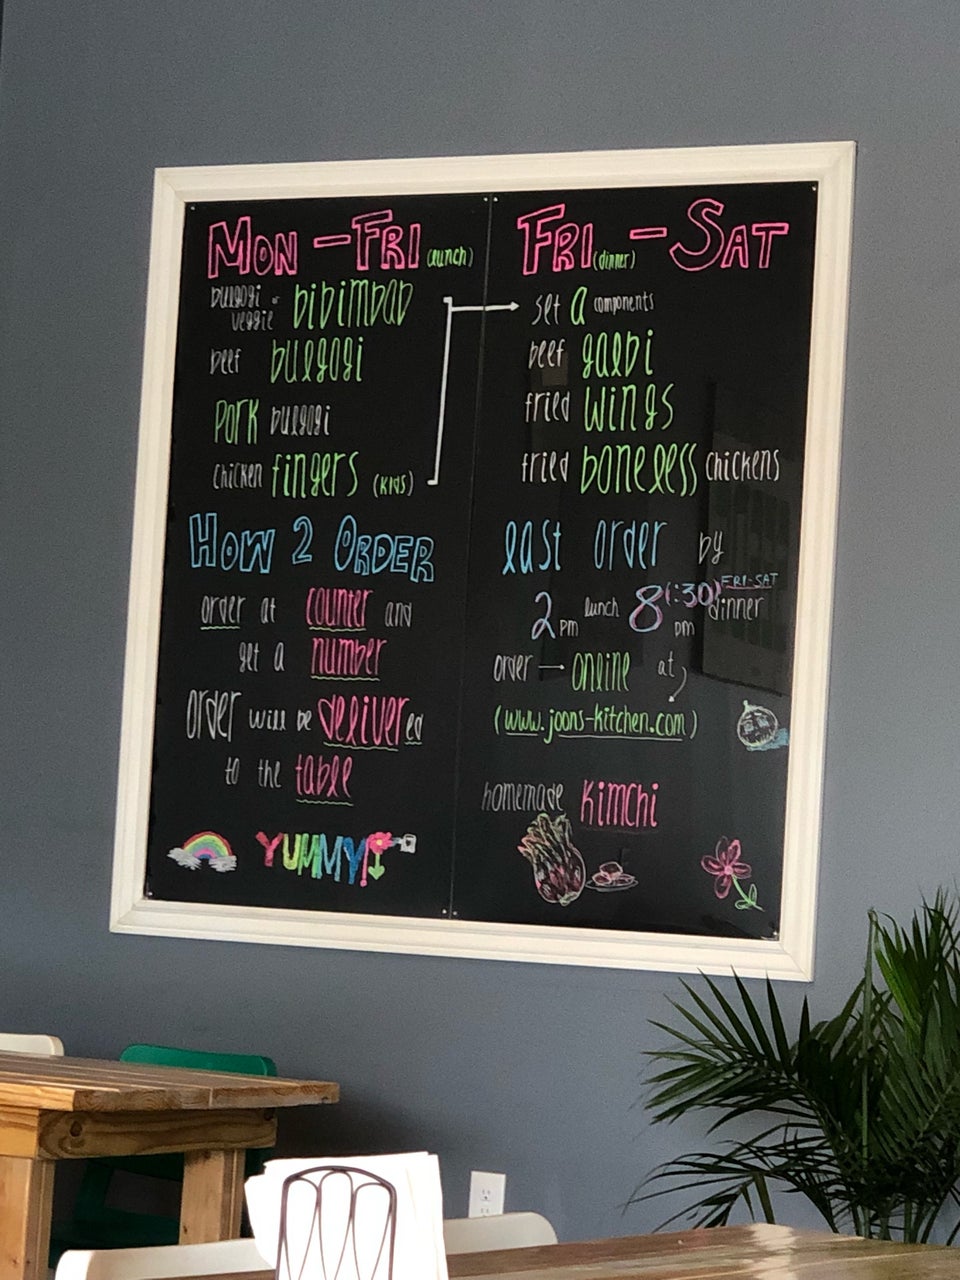 MON-FRI (lunch)
bulgogi or
veggie bibimbab
beef bulgogi
PORK bulgogi
chicken fingers (KIDS)
HOW 2 ORDER
order at counter and
get a number
order will be delivered
to the table
YUMMY!
FRI (dinner) - SAT
set a components
beef galbi
fried wings
fried boneless chickens
last order by
2 pm lunch 8(:30) pm FRI-SAT dinner
order → online at
(www.joons-kitchen.com)
homemade kimchi